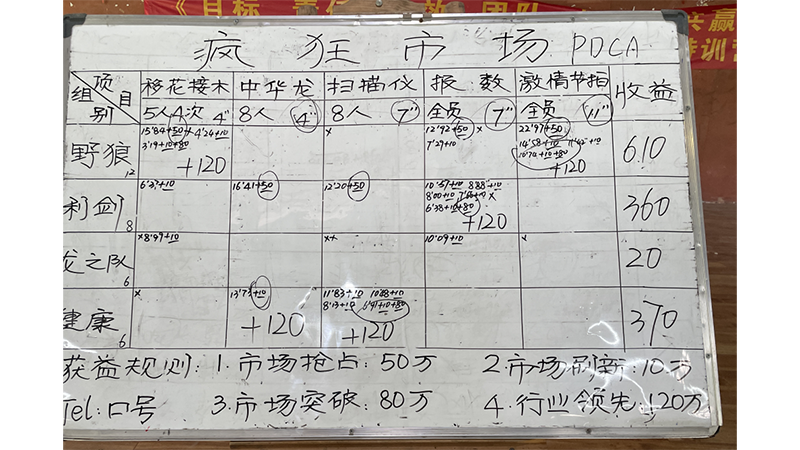 《目标 责任 团队
共赢
特训营
疯狂市场 PDCA
项目 组别 移花接木 中华龙 扫描仪 报数 激情节拍 收益
5人4次 4" 8人 4" 8人 7" 全员 7" 全员 11"
野狼 12 15"84+50 × 4"24+10 × 12"92+50 × 22"97+50 610
3"19+10+80 7"27+10 14"58+10 11"42+10
+120 10"74+10+80
+120
利剑 8 6"37+10 16"41+50 12"20+50 10"57+10 8"88+10 360
8"00+10 7"66+10 ×
6"38+10+80
+120
龙之队 6 ×8"99+10 ×× 10"09+10 × 20
健康 6 × 13"73+10 11"83+10 10"88+10 370
8"13+10 6"91+10+80
+120 +120
获益规则: 1.市场抢占:50万 2.市场刷新:10万
Tel:口号 3.市场突破:80万 4.行业领先:120万